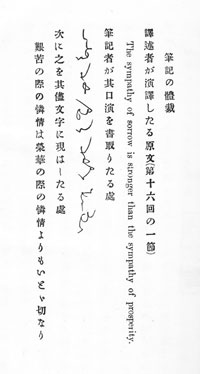 筆記の體裁
譯述者が演譯したる原文(第十六回の一節)
The sympathy of sorrow is stronger than the sympathy of prosperity.
筆記者が其口演を書取りたる處
次に之を其儘文字に現はしたる處
艱苦の際の憐情は榮華の際の憐情よりもいとゞ切なり